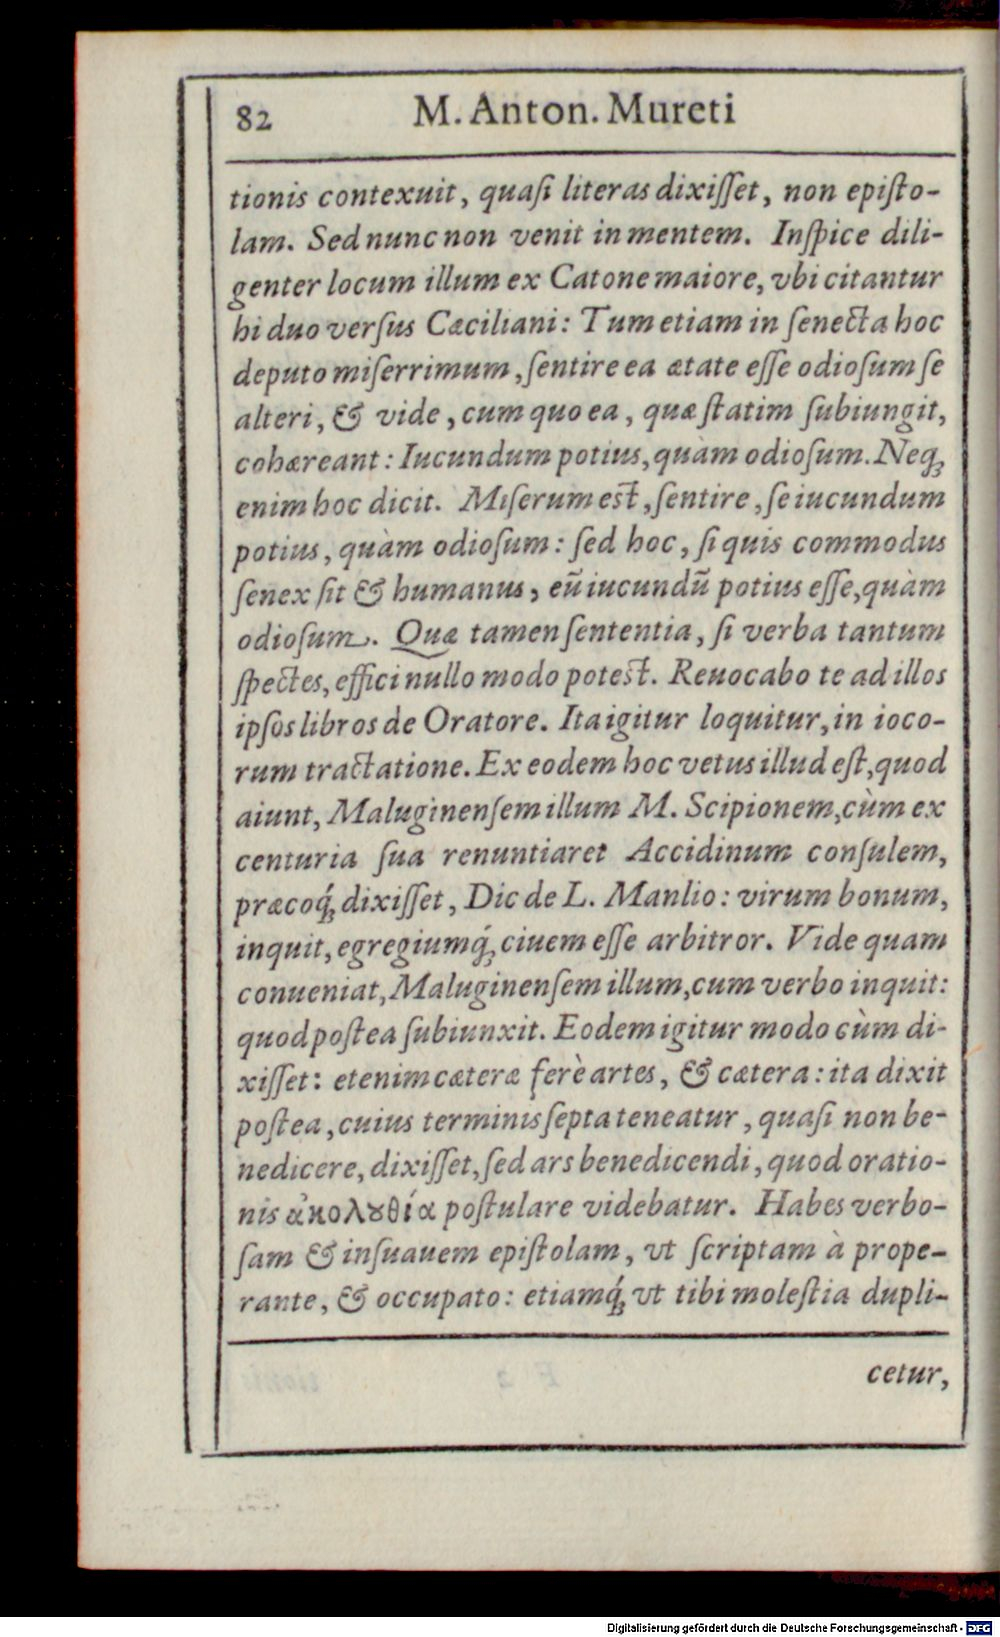 82 M. Anton. Mureti
tionis contexuit, quaſi literas dixiſſet, non epiſto-
lam. Sed nunc non venit in mentem. Inſpice dili-
genter locum illum ex Catone maiore, vbi citantur
hi duo verſus Cæciliani: Tum etiam in ſenecta hoc
deputo miſerrimum, ſentire ea ætate eſſe odioſum ſe
alteri, & vide, cum quo ea, quæ ſtatim ſubiungit,
cohæreant: Iucundum potius, quàm odioſum. Neq;
enim hoc dicit. Miſerum est, ſentire, ſe iucundum
potius, quàm odioſum: ſed hoc, ſi quis commodus
ſenex ſit & humanus, eū iucundū potius eſſe, quàm
odioſum. Quæ tamen ſententia, ſi verba tantum
ſpectes, effici nullo modo potest. Reuocabo te ad illos
ipſos libros de Oratore. Ita igitur loquitur, in ioco-
rum tractatione. Ex eodem hoc vetus illud eſt, quod
aiunt, Maluginenſem illum M. Scipionem, cùm ex
centuria ſua renuntiaret Accidinum conſulem,
præcoq́; dixiſſet, Dic de L. Manlio: virum bonum,
inquit, egregiumq́; ciuem eſſe arbitror. Vide quam
conueniat, Maluginenſem illum, cum verbo inquit:
quod poſtea ſubiunxit. Eodem igitur modo cùm di-
xiſſet: etenim cæteræ ferè artes, & cætera: ita dixit
poſtea, cuius terminis ſepta teneatur, quaſi non be-
nedicere, dixiſſet, ſed ars benedicendi, quod oratio-
nis ἀκολȣθία poſtulare videbatur. Habes verbo-
ſam & inſuauem epiſtolam, vt ſcriptam à prope-
rante, & occupato: etiamq́; vt tibi moleſtia dupli-
cetur,
Digitalisierung gefördert durch die Deutsche Forschungsgemeinschaft - DFG